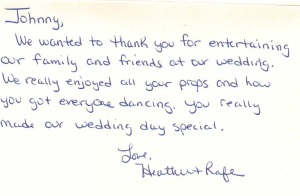 Johnny,
We wanted to thank you for entertaining
our family and friends at our wedding.
We really enjoyed all your props and how
you got everyone dancing. You really
made our wedding day special.
Love,
Heather + Rafe